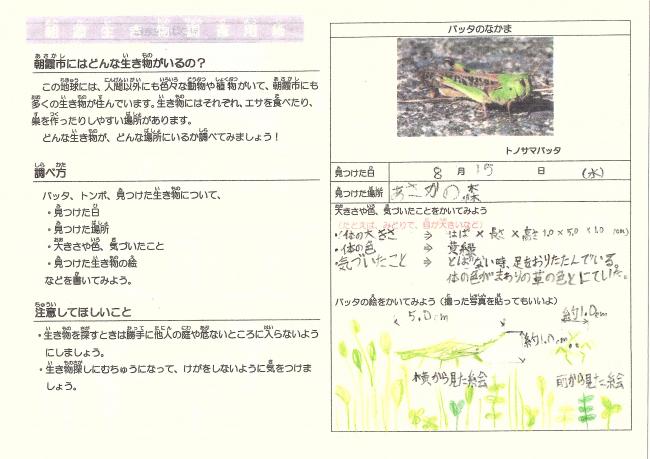 朝霞市にはどんな生き物がいるの？
この地球には、人間以外にも色々な動物や植物がいて、朝霞市にも
多くの生き物が住んでいます。生き物にはそれぞれ、エサを食べたり、
巣を作ったりしやすい場所があります。
どんな生き物が、どんな場所にいるか調べてみましょう！
調べ方
バッタ、トンボ、見つけた生き物について、
・見つけた日
・見つけた場所
・大きさや色、気づいたこと
・見つけた生き物の絵
などを書いてみよう。
注意してほしいこと
・生き物を探すときは勝手に他人の庭や危ないところに入らないよう
にしましょう。
・生き物探しにむちゅうになって、けがをしないように気をつけま
しょう。
バッタのなかま
トノサマバッタ
見つけた日 8 月 15 日 (水)
見つけた場所 あさかの森
大きさや色、気づいたことをかいてみよう
(たとえば、みどりで、目が大きいなど)
・体の大きさ ⇒ はば×長さ×高さ 1.0×5.0×1.0 cm)
・体の色 ⇒ 黄緑
・気づいたこと ⇒ とばない時、足をおりたたんでいる。
体の色がまわりの草の色とにていた。
バッタの絵をかいてみよう（撮った写真を貼ってもいいよ）
5.0cm
約1.0cm
約1.0cm
横から見た絵
前から見た絵